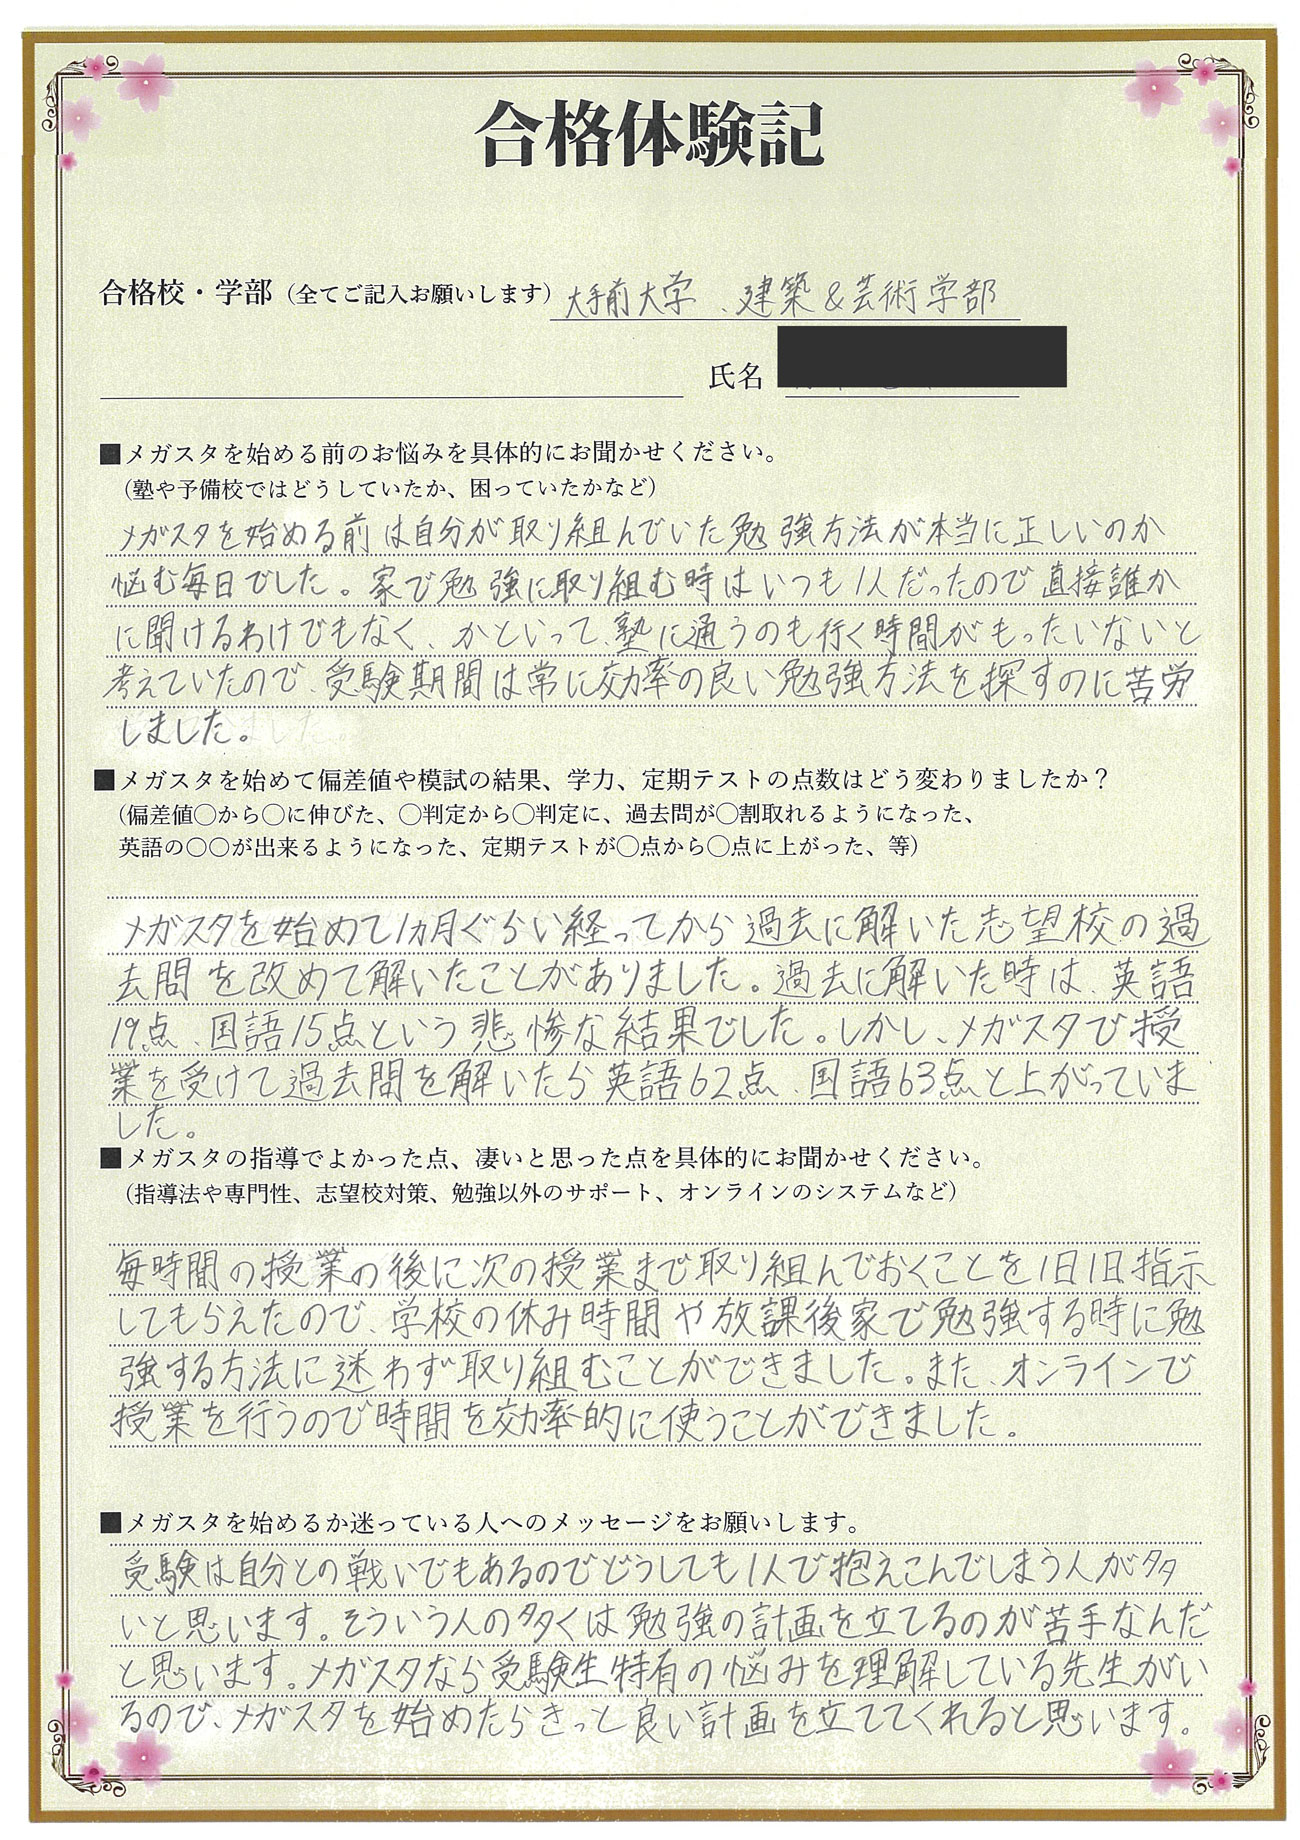 合格体験記
合格校・学部（全てご記入お願いします）大手前大学、建築&芸術学部
氏名
■メガスタを始める前のお悩みを具体的にお聞かせください。
（塾や予備校ではどうしていたか、困っていたかなど）
メガスタを始める前は自分が取り組んでいた勉強方法が本当に正しいのか
悩む毎日でした。家で勉強に取り組む時はいつも1人だったので直接誰か
に聞けるわけでもなく、かといって、塾に通うのも行く時間がもったいないと
考えていたので、受験期間は常に効率の良い勉強方法を探すのに苦労
しました。
■メガスタを始めて偏差値や模試の結果、学力、定期テストの点数はどう変わりましたか？
（偏差値〇から〇に伸びた、〇判定から〇判定に、過去問が〇割取れるようになった、
英語の〇〇が出来るようになった、定期テストが〇点から〇点に上がった、等）
メガスタを始めて1ヵ月ぐらい経ってから過去に解いた志望校の過
去問を改めて解いたことがありました。過去に解いた時は、英語
19点、国語15点という悲惨な結果でした。しかし、メガスタで授
業を受けて過去問を解いたら英語62点、国語63点と上がっていま
した。
■メガスタの指導でよかった点、凄いと思った点を具体的にお聞かせください。
（指導法や専門性、志望校対策、勉強以外のサポート、オンラインのシステムなど）
毎時間の授業の後に次の授業まで取り組んでおくことを1日1日指示
してもらえたので、学校の休み時間や放課後家で勉強する時に勉
強する方法に迷わず取り組むことができました。また、オンラインで
授業を行うので時間を効率的に使うことができました。
■メガスタを始めるか迷っている人へのメッセージをお願いします。
受験は自分との戦いでもあるのでどうしても1人で抱えこんでしまう人が多
いと思います。そういう人の多くは勉強の計画を立てるのが苦手なんだ
と思います。メガスタなら受験生特有の悩みを理解している先生がい
るので、メガスタを始めたらきっと良い計画を立ててくれると思います。